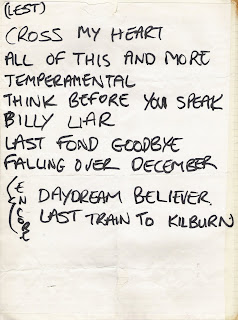 (LEST)
CROSS MY HEART
ALL OF THIS AND MORE
TEMPERAMENTAL
THINK BEFORE YOU SPEAK
BILLY LIAR
LAST FOND GOODBYE
FALLING OVER DECEMBER
ENCORE
DAYDREAM BELIEVER.
LAST TRAIN TO KILBURN